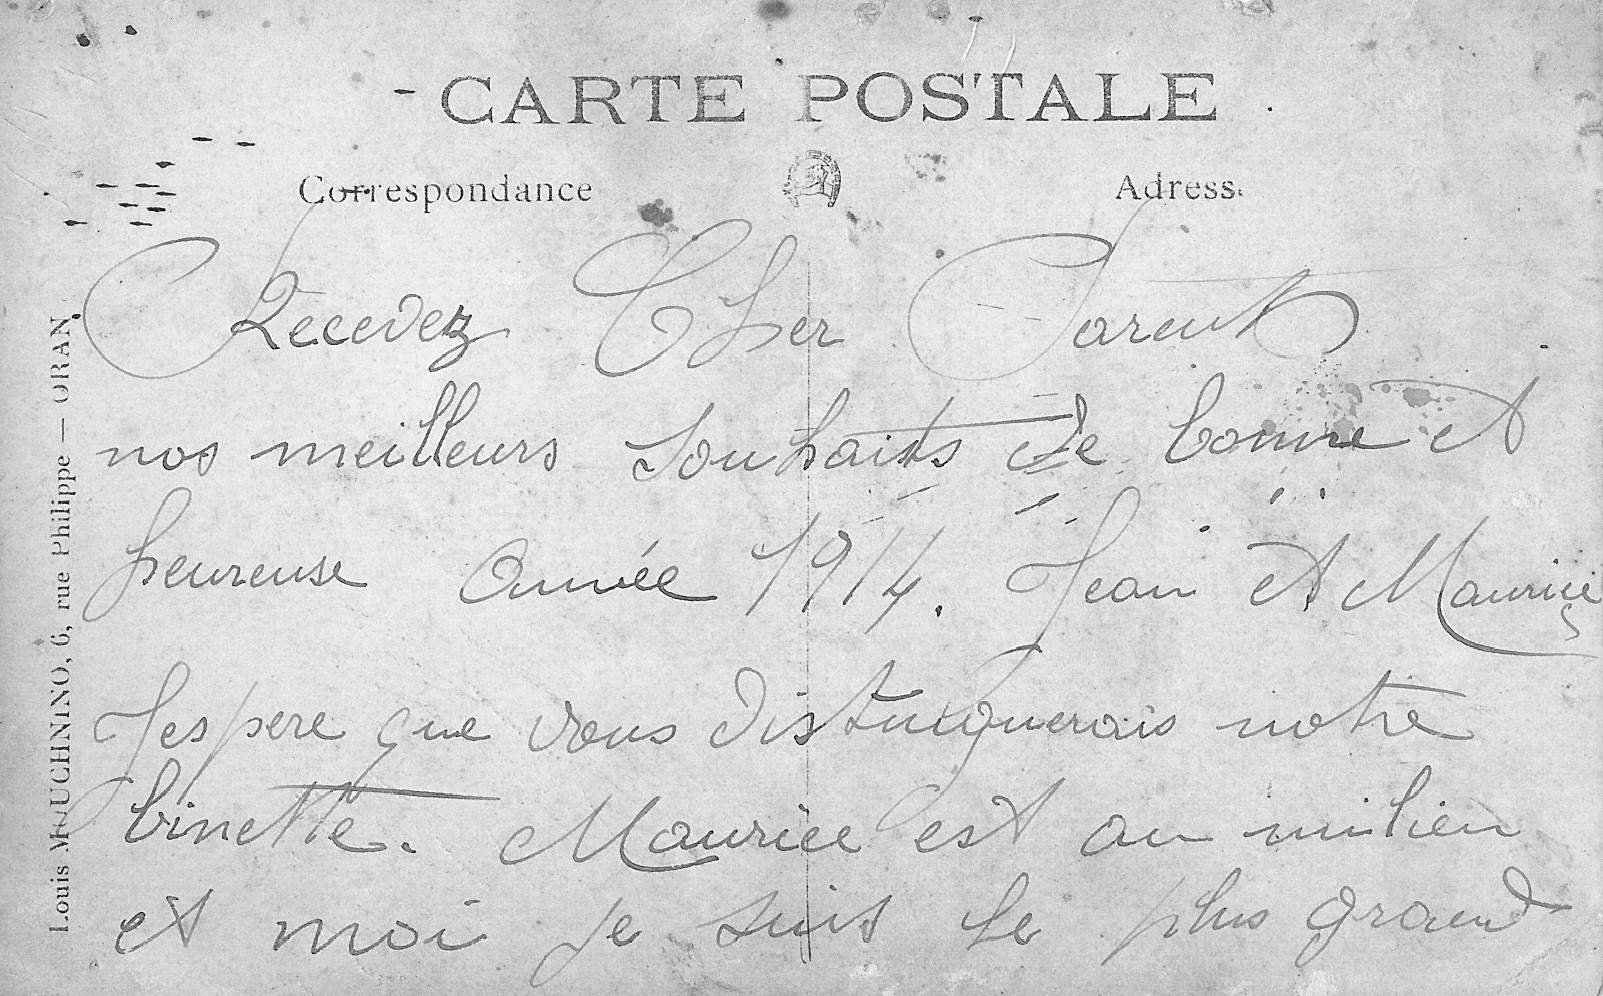 CARTE POSTALE
Correspondance
Adresse
Recevez Cher Parent
nos meilleurs souhaits de bonne et
heureuse année 1914. Jean et Maurice
Jespere que vous distinguerais notre
binette. Maurice est au milieu
et moi je suis le plus grand
Louis MOUCHNINO, 6, rue Philippe — ORAN